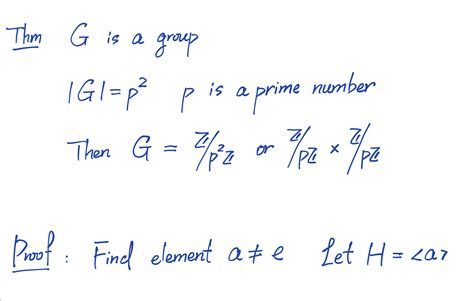 Thm G is a group
|G| = p² p is a prime number
Then G = ℤ/p²ℤ or ℤ/pℤ × ℤ/pℤ
Proof : Find element a ≠ e Let H = <a>